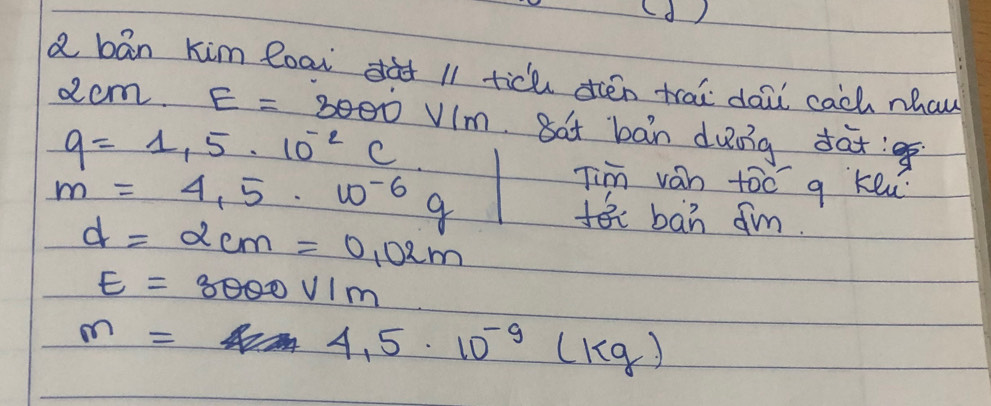 2 bản kim loại đặt // tích điện trái dấu cách nhau
2cm. E = 3000 V/m. Sát bản dương đặt: q.
q = 1,5 . 10⁻² C.
m = 4,5 . 10⁻⁶ g
Tìm vận tốc q khi
tới bản âm.
d = 2cm = 0,02m
E = 3000 V/m.
m = 4,5 . 10⁻⁹ (kg)